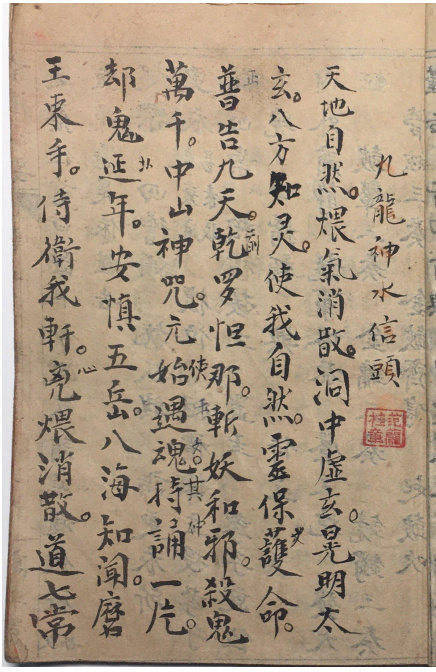 九龍神水信頭
天地自然。煨氣消散。洞中虛玄。晃明太
玄。八方知灵。使我自然。霊保護命。
普告九天。乾罗怛那。斬妖和邪。殺鬼
萬千。中山神咒。元始遇魂。持誦一
却鬼延年。安慎五岳。八海知闻。磨
王束手。侍衛我軒。煨消散。道七常